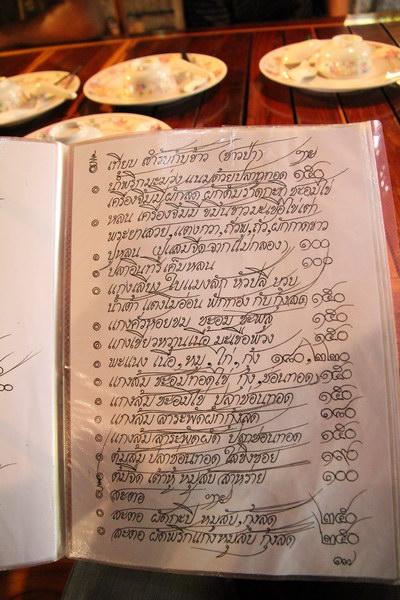 เทียบ สำรับกับข้าว (ชาวป่า) ๖๒๕
น้ำพริกมะม่วง แนมด้วยปลาทูทอด ๑๕๐
เครื่องจิ้มมี ผักสด ผักต้มราดกะทิ ชะอมไข่
หลน เครื่องจิ้มมี ขมิ้นขาว มะเขือไข่เต่า
ปูหลน (ปูแสมจืด จากแปดกลอง) ๑๐๐
ปลาอินทรีเค็มหลน ๑๐๐
แกงเลียง ใบแมงลัก หัวปลี บวบ
น้ำเต้า แตงโมอ่อน ฟักทอง กับกุ้งสด ๑๕๐
แกงคั่วหอยขม ชะอม ชะพลู ๑๕๐
แกงเขียวหวานเนื้อ มะเขือพวง ๑๕๐
พะแนง เนื้อ, หมู, ไก่, กุ้ง ๑๘๐, ๒๒๐
แกงส้ม ชะอมทอดไข่ กุ้ง, ช่อนทอด ๑๕๐
แกงส้ม ชะอมไข่ ปลาช่อนทอด ๑๕๐
แกงส้ม สารพัดผักกุ้งสด ๑๘๐
แกงส้ม สารพัดผัก ปลาช่อนทอด ๑๕๐
ต้มส้ม ปลาช่อนทอด ใส่ขิงซอย ๑๙๐
ต้มจืด เต้าหู้ หมูสับ สาหร่าย ๑๐๐
สะตอ
สะตอ ผัดกะปิ หมูสับ, กุ้งสด ๒๕๐
สะตอ ผัดพริกแกงหมูสับ กุ้งสด ๒๕๐
๑๓